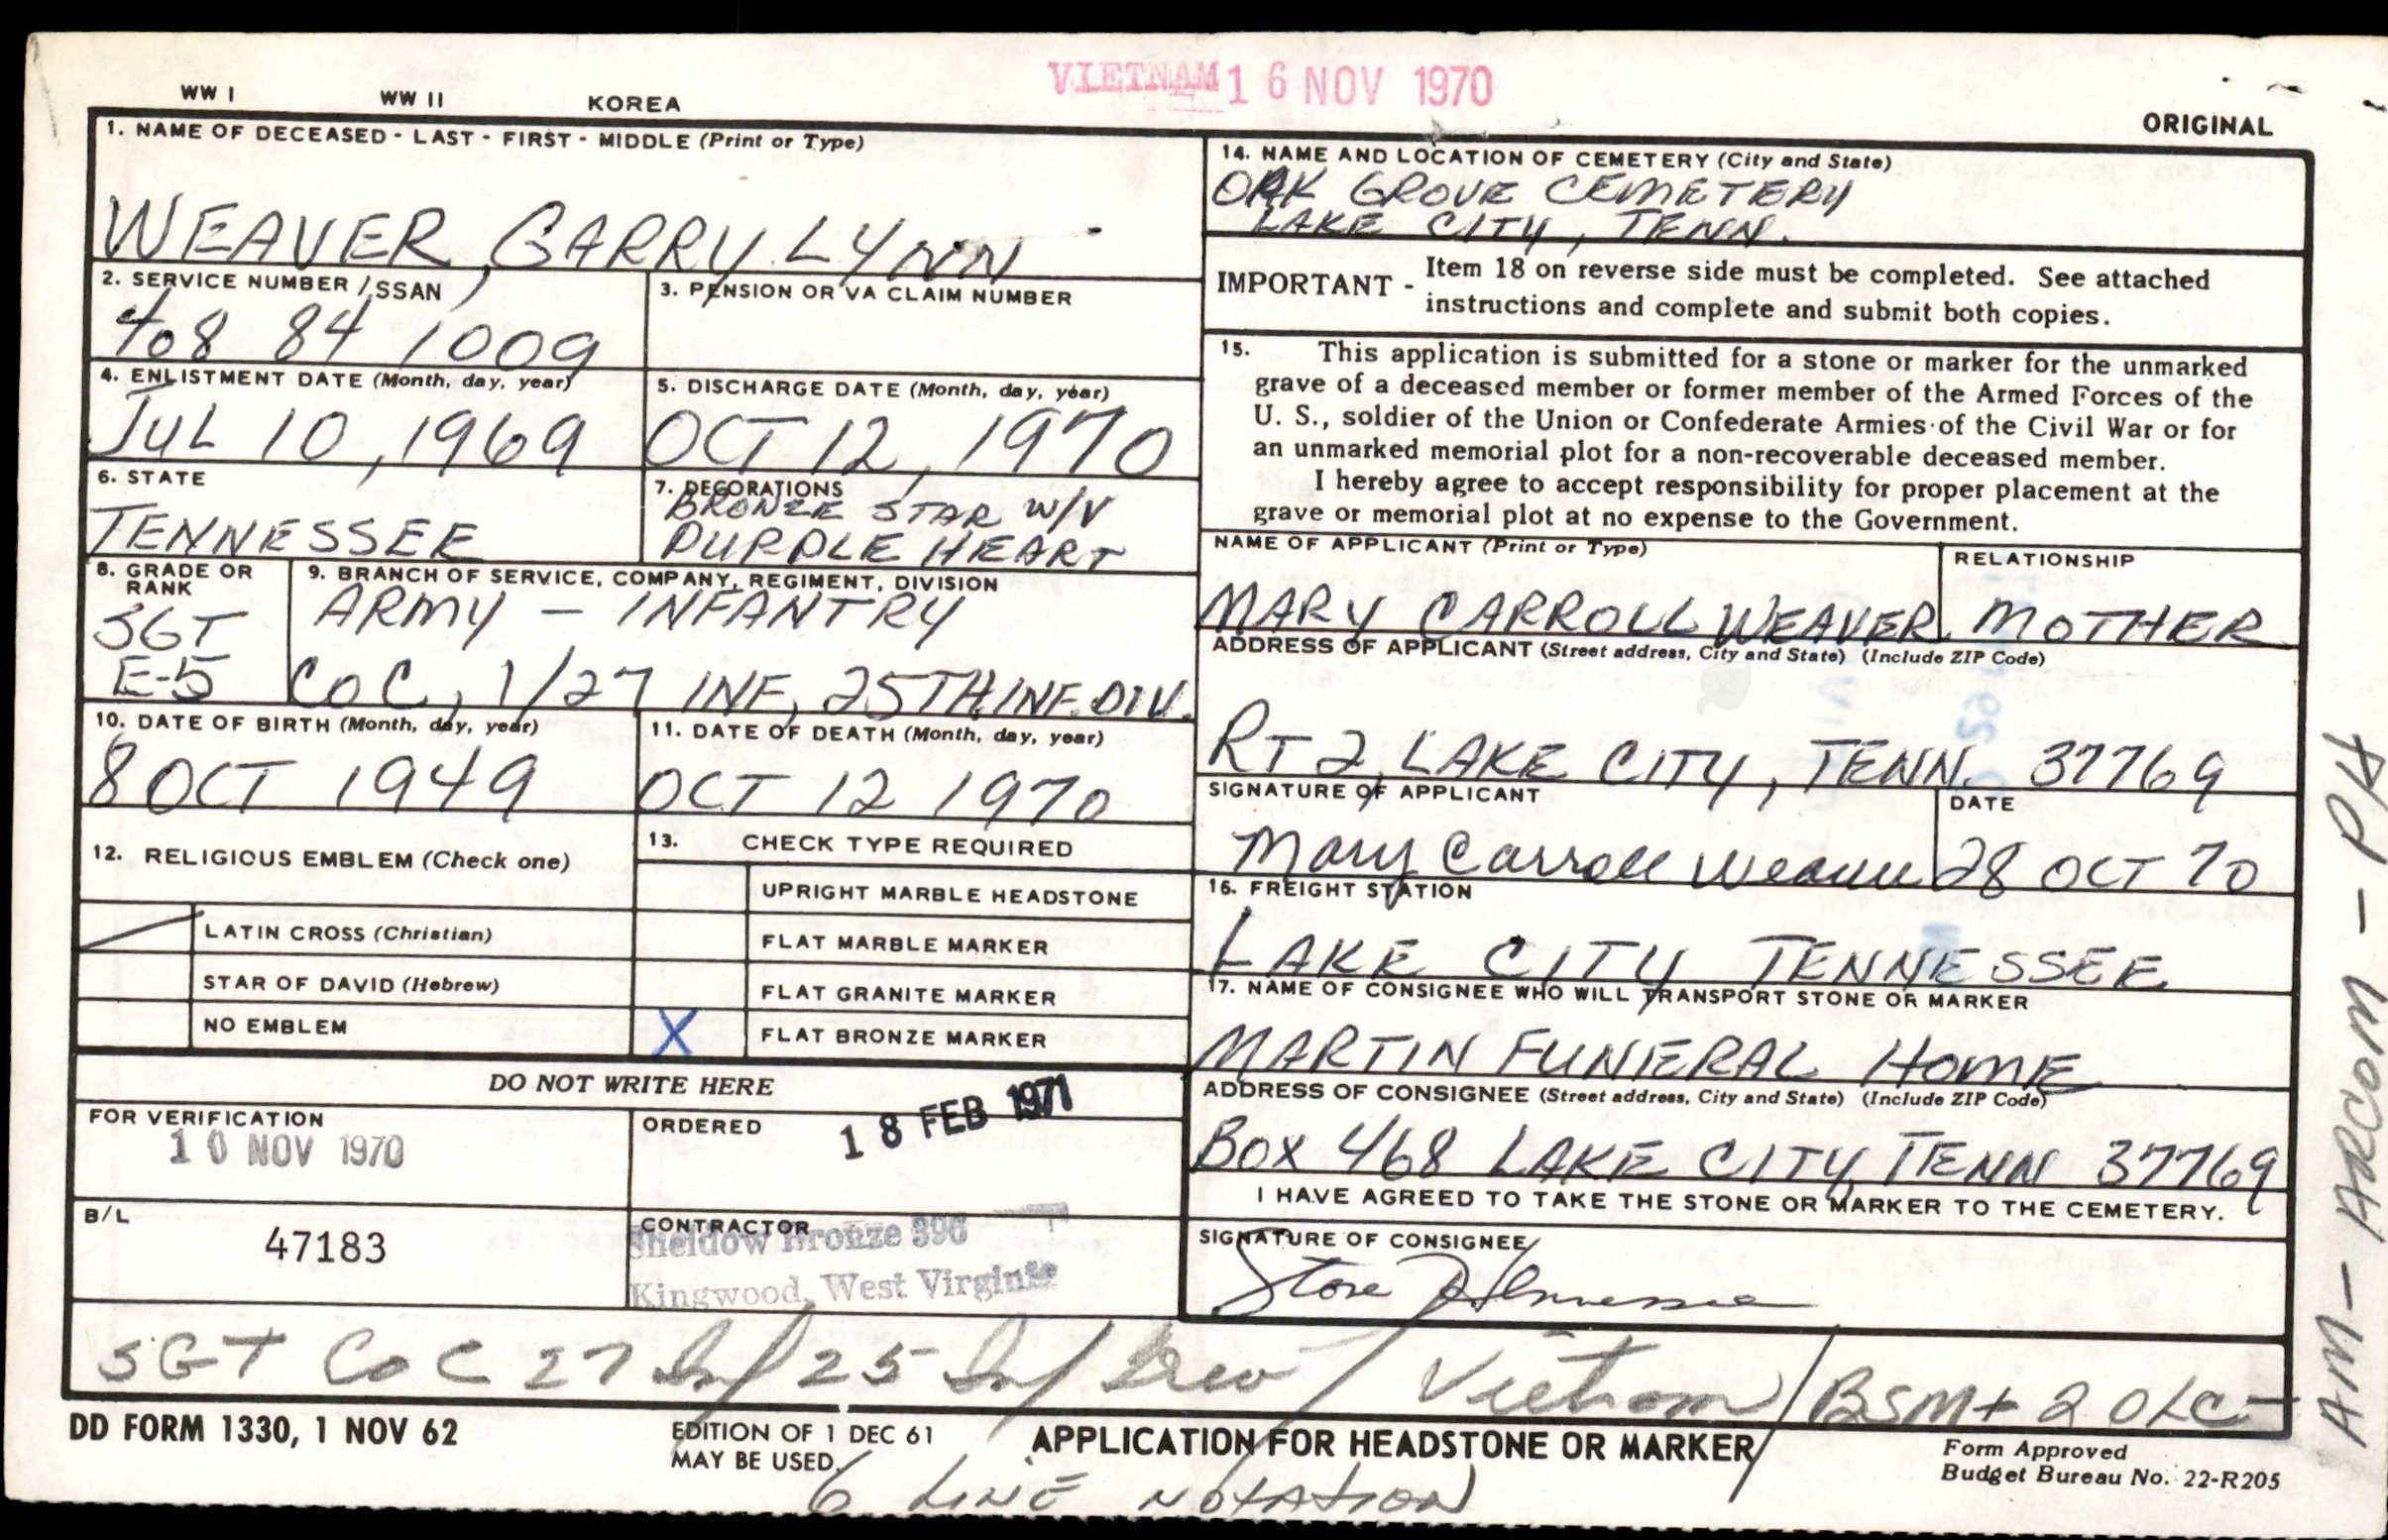 WW I WW II KOREA VIETNAM 16 NOV 1970
ORIGINAL
1. NAME OF DECEASED - LAST - FIRST - MIDDLE (Print or Type)
WEAVER, GARRY LYNN
2. SERVICE NUMBER / SSAN
408 84 1009
3. PENSION OR VA CLAIM NUMBER
4. ENLISTMENT DATE (Month, day, year)
JUL 10, 1969
5. DISCHARGE DATE (Month, day, year)
OCT 12, 1970
6. STATE
TENNESSEE
7. DECORATIONS
BRONZE STAR W/V
PURPLE HEART
8. GRADE OR RANK
SGT
E-5
9. BRANCH OF SERVICE, COMPANY, REGIMENT, DIVISION
ARMY - INFANTRY
CO C, 1/27 INF, 25TH INF. DIV.
10. DATE OF BIRTH (Month, day, year)
8 OCT 1949
11. DATE OF DEATH (Month, day, year)
OCT 12 1970
12. RELIGIOUS EMBLEM (Check one)
LATIN CROSS (Christian)
STAR OF DAVID (Hebrew)
NO EMBLEM
13. CHECK TYPE REQUIRED
UPRIGHT MARBLE HEADSTONE
FLAT MARBLE MARKER
FLAT GRANITE MARKER
X FLAT BRONZE MARKER
DO NOT WRITE HERE
FOR VERIFICATION
10 NOV 1970
ORDERED
18 FEB 1971
B/L
47183
CONTRACTOR
Sheldow Bronze 396
Kingwood, West Virginia
14. NAME AND LOCATION OF CEMETERY (City and State)
OAK GROVE CEMETERY
LAKE CITY, TENN.
IMPORTANT - Item 18 on reverse side must be completed. See attached
instructions and complete and submit both copies.
15. This application is submitted for a stone or marker for the unmarked
grave of a deceased member or former member of the Armed Forces of the
U. S., soldier of the Union or Confederate Armies of the Civil War or for
an unmarked memorial plot for a non-recoverable deceased member.
I hereby agree to accept responsibility for proper placement at the
grave or memorial plot at no expense to the Government.
NAME OF APPLICANT (Print or Type)
MARY CARROLL WEAVER
RELATIONSHIP
MOTHER
ADDRESS OF APPLICANT (Street address, City and State) (Include ZIP Code)
RT 2, LAKE CITY, TENN. 37769
SIGNATURE OF APPLICANT
Mary Carroll Weaver
DATE
28 OCT 70
16. FREIGHT STATION
LAKE CITY TENNESSEE
17. NAME OF CONSIGNEE WHO WILL TRANSPORT STONE OR MARKER
MARTIN FUNERAL HOME
ADDRESS OF CONSIGNEE (Street address, City and State) (Include ZIP Code)
BOX 468 LAKE CITY, TENN 37769
I HAVE AGREED TO TAKE THE STONE OR MARKER TO THE CEMETERY.
SIGNATURE OF CONSIGNEE
SGT Co C 27 Inf / 25 Inf Div / Vietnam / BSM + 2 OLC -
AM - ARCOM - PH
DD FORM 1330, 1 NOV 62
EDITION OF 1 DEC 61
MAY BE USED.
APPLICATION FOR HEADSTONE OR MARKER
Form Approved
Budget Bureau No. 22-R205
6 LINE NOTATION